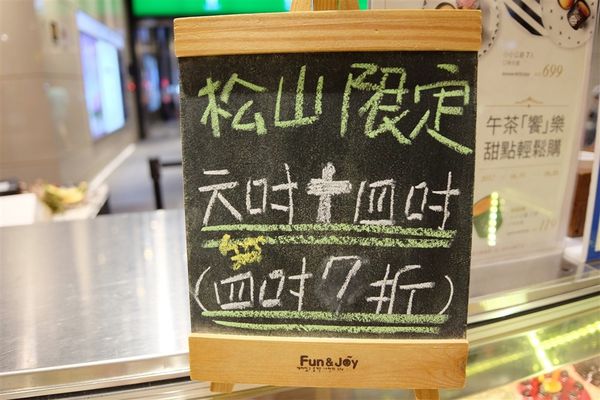 松山限定
六吋+四吋
(四吋7折)
Fun & Joy
699
午茶「饗」樂
甜點輕鬆購